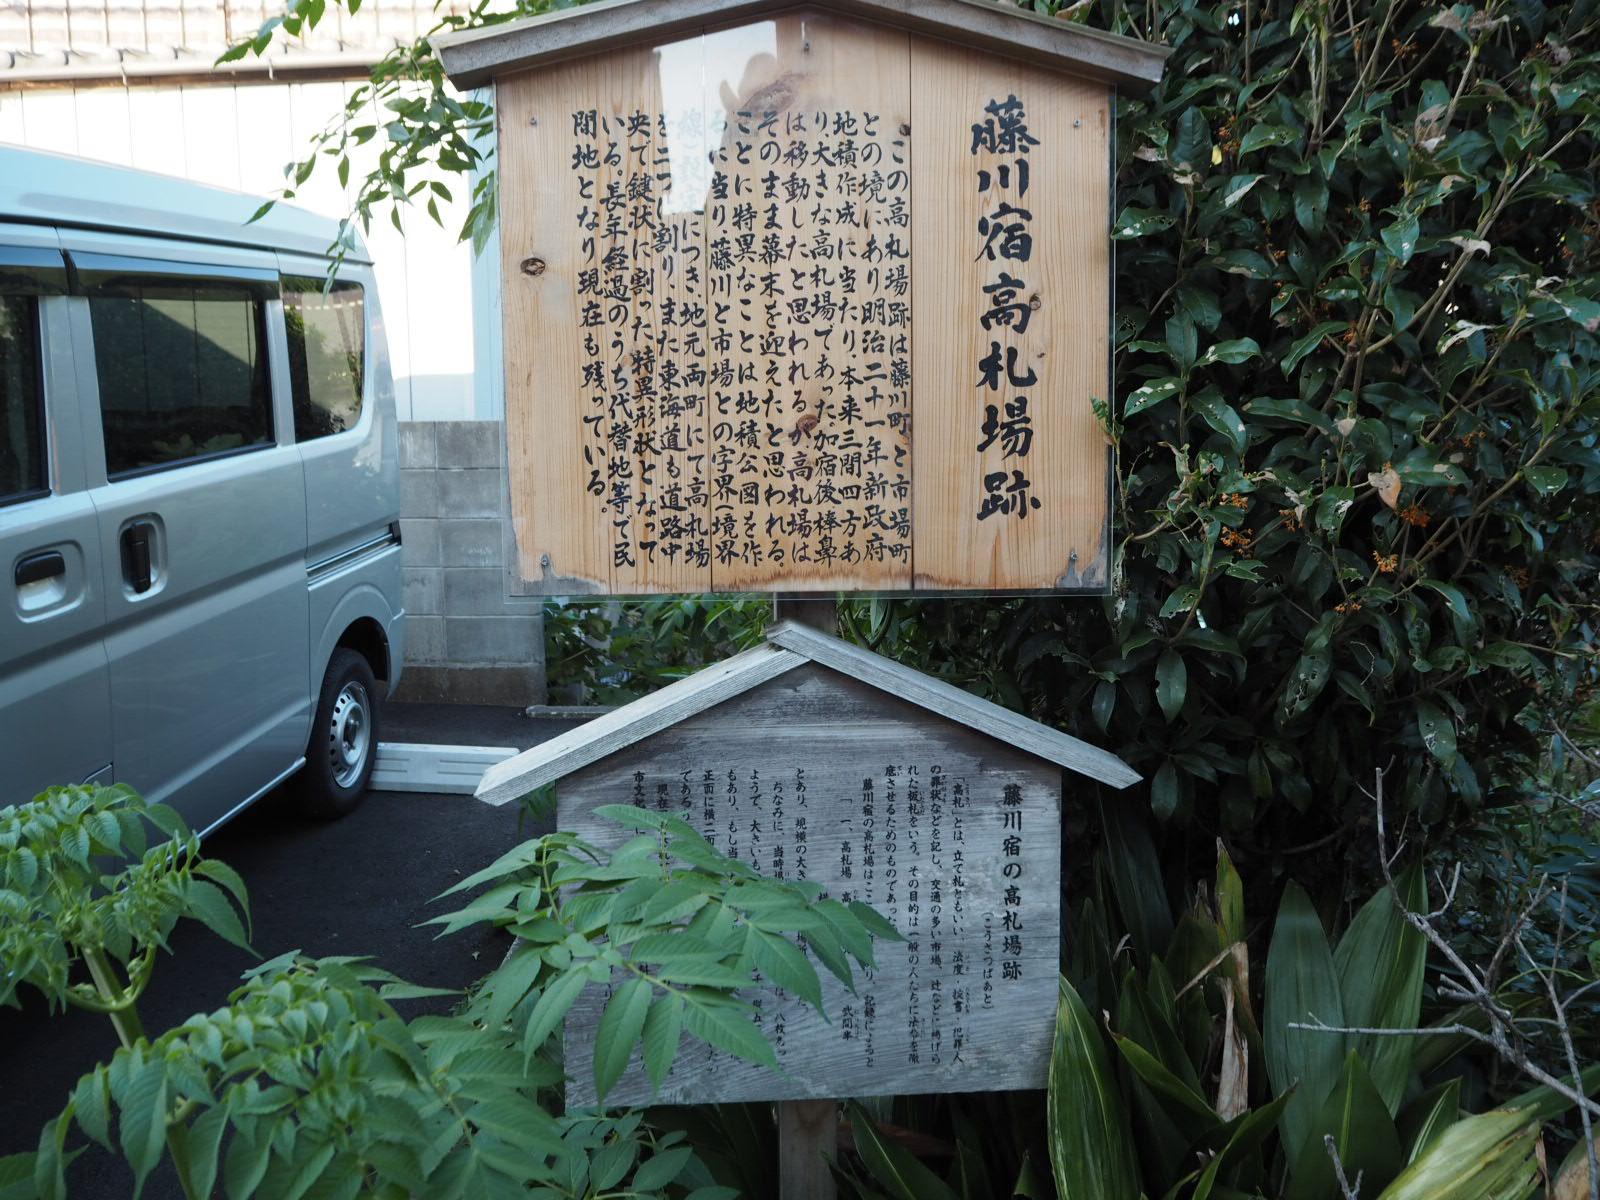 藤川宿高札場跡
この高札場跡は藤川町と市場町
との境にあり明治二十一年新政府
地積作成に当たり、本来三間四方あ
り大きな高札場であった。加宿後棒鼻
は移動したと思われるが高札場は
そのまま幕末を迎えたと思われる。
ことに特異なことは地積公図を作
るに当り藤川と市場との字界(境界
線)設定につき地元両町にて高札場
を二つに割り、また東海道も道路中
央で鍵状に割った特異形状となって
いる。長年経過のうち代替地等で民
間地となり現在も残っている。
藤川宿の高札場跡
(こうさつばあと)
「高札」とは、立て札ともいい、法度・掟書・犯罪人
の罪状などを記し、交通の多い市場、辻などに掲げら
れた板札をいう。その目的は一般の人たちに法令を徹
底させるためのものであった
藤川宿の高札場はここ 記録によると
「一、高札場 高 弐間半
横
とあり、規模の大き
ちなみに、当時 場所 は、八枚あっ
ようで、大きいも
もあり、もし当
正面に横二面
であろ
現在
市文化